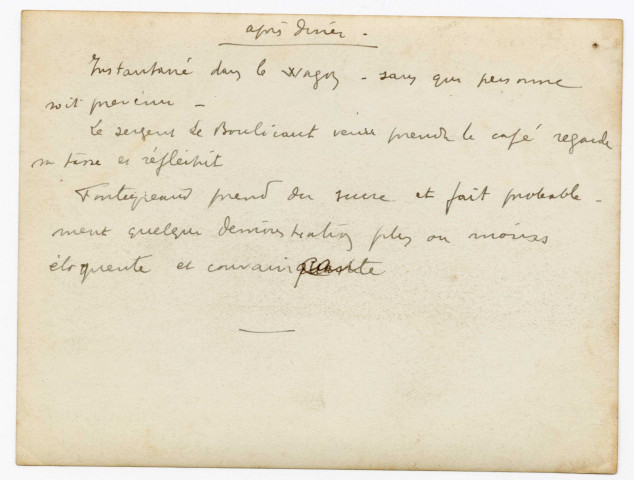 après diner -
Instantané dans le wagon - sans que personne
soit prévenu -
Le sergent Le Boulicaut venu prendre le café regarde
sa tasse et réfléchit
prend du sucre et fait probable-
ment quelque démonstration plus ou moins
éloquente et convaincante